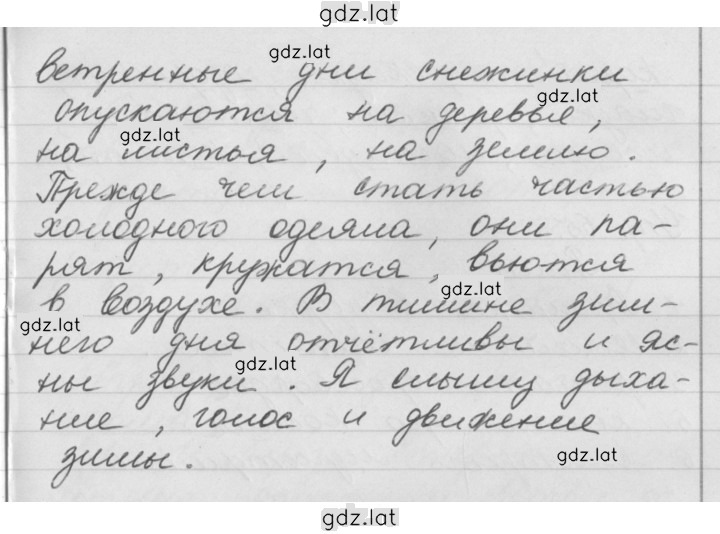 gdz.lat
gdz.lat
ветренные дни снежинки
gdz.lat
опускаются на деревья,
gdz.lat
на листья, на землю.
Прежде чем стать частью
холодного одеяла, они па-
рят, кружатся, вьются
gdz.lat
в воздухе. В тишине зим-
gdz.lat
него дня отчётливы и яс-
gdz.lat
ны звуки. Я слышу дыха-
ние, голос и движение
зимы.
gdz.lat
gdz.lat